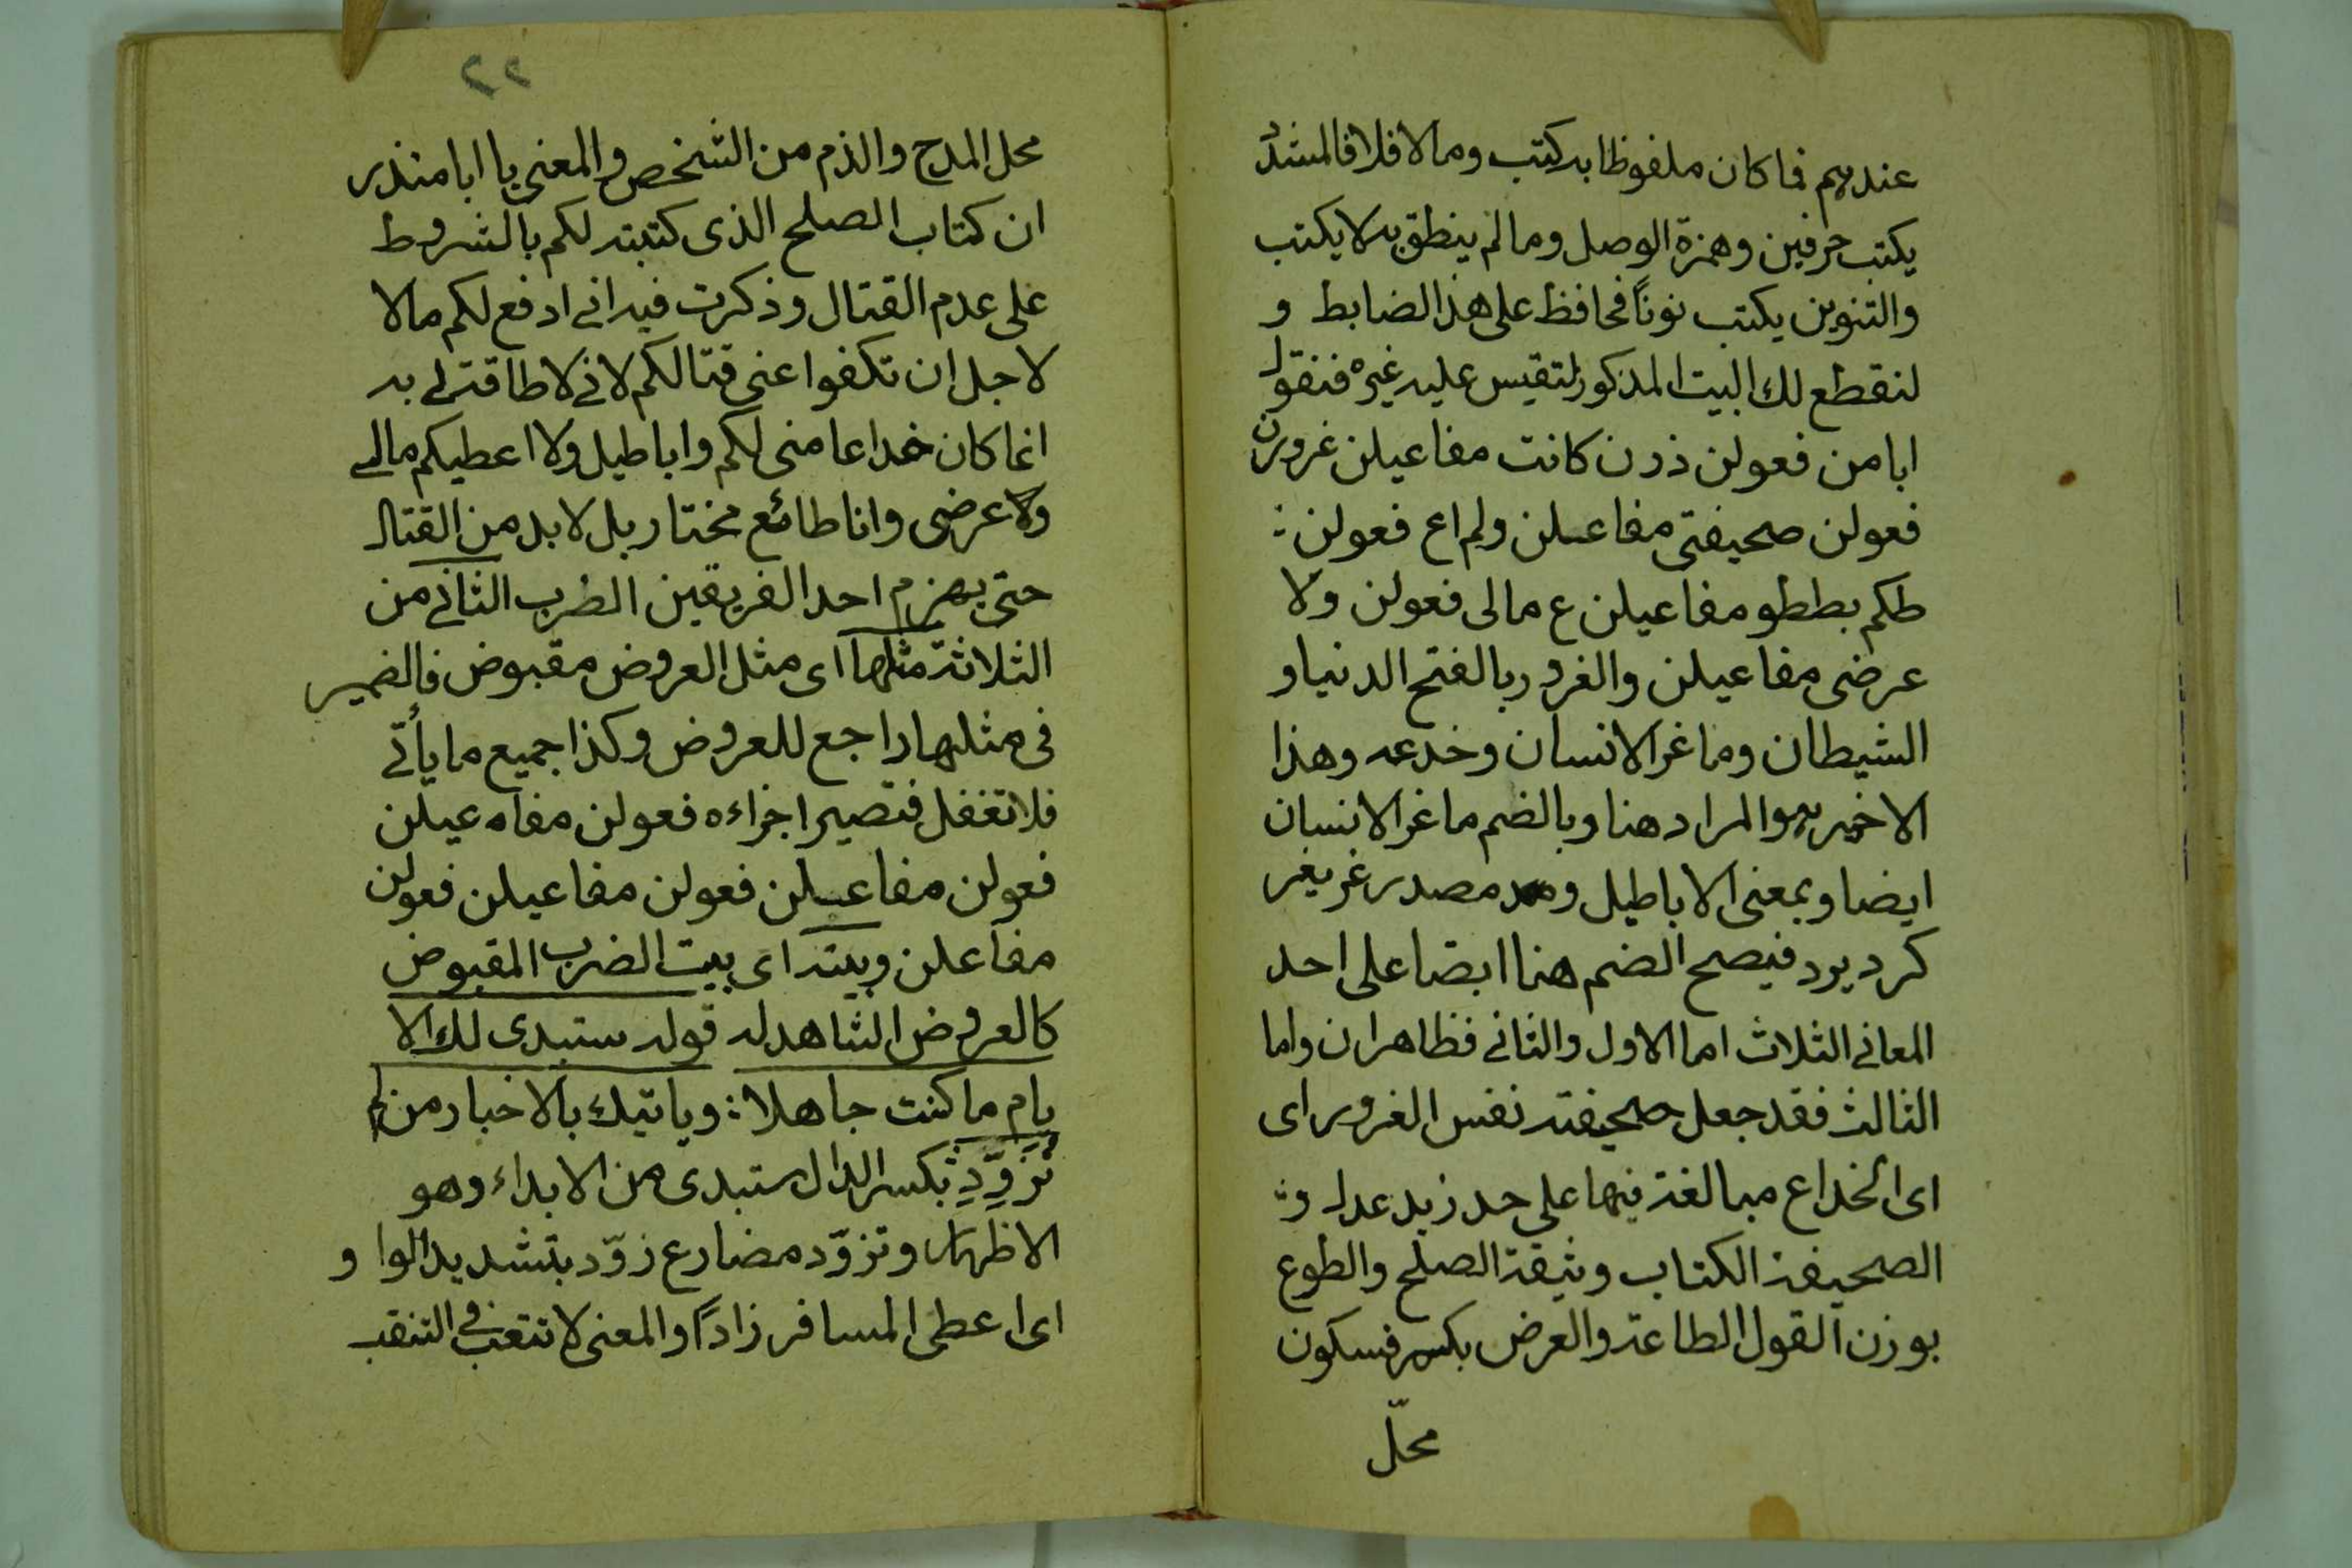 عندهم فما كان ملفوظا به كتب وما لا فلا فالمشدد
يكتب حرفين وهمزة الوصل وما لم ينطق به لا يكتب
والتنوين يكتب نوناً فحافظ على هذا الضابط و
لنقطع لك البيت المذكور لتقيس عليه غيره فنقول
ابا من فعولن ذرن كانت مفاعيلن غرورن
فعولن صحيفتى مفاعلن ولم اع فعولن :
طكم بططو مفاعيلن ع مالى فعولن ولا
عرضى مفاعيلن والغرور بالفتح الدنيا و
الشيطان وما غر الانسان وخدعه وهذا
الاخير هو المراد هنا وبالضم ما غر الانسان
ايضا وبمعنى الاباطيل ومصدر غر يغر
كرد يرد فيصح الضم هنا ايضا على احد
المعانى الثلاث اما الاول والثانى فظاهران واما
الثالث فقد جعل صحيفته نفس الغرور اى
اى الخداع مبالغة فيها على حد زيد عدل و
الصحيفة الكتاب وثيقة الصلح والطوع
بوزن القول الطاعة والعرض بكسر فسكون
محلّ
٢٢
محل المدح والذم من الشخص والمعنى يا ابا منذر
ان كتاب الصلح الذى كتبته لكم بالشروط
على عدم القتال وذكرت فيه انى ادفع لكم مالا
لاجل ان تكفوا عنى قتالكم لانى لا طاقة لى به
انما كان خداعا منى لكم واباطيل ولا اعطيكم مالى
ولا عرضى وانا طائع مختار بل لا بد من القتال
حتى يهزم احد الفريقين الضرب الثانى من
الثلاثة مثلها اى مثل العروض مقبوض فالضمير
فى مثلها راجع للعروض وكذا جميع ما يأتى
فلا تغفل فتصير اجزاءه فعولن مفاعيلن
فعولن مفاعلن فعولن مفاعيلن فعولن
مفاعلن وبيته اى بيت الضرب المقبوض
كالعروض الشاهد له قوله ستبدى لك الا
يام ما كنت جاهلا : وياتيك بالاخبار من لم
تُزَوِّدِ بكسر الدال ستبدى من الابداء وهو
الاظهار وتزوّد مضارع زوّد بتشديد الوا و
اى اعطى المسافر زاداً والمعنى لا تتعب فى التنقيب